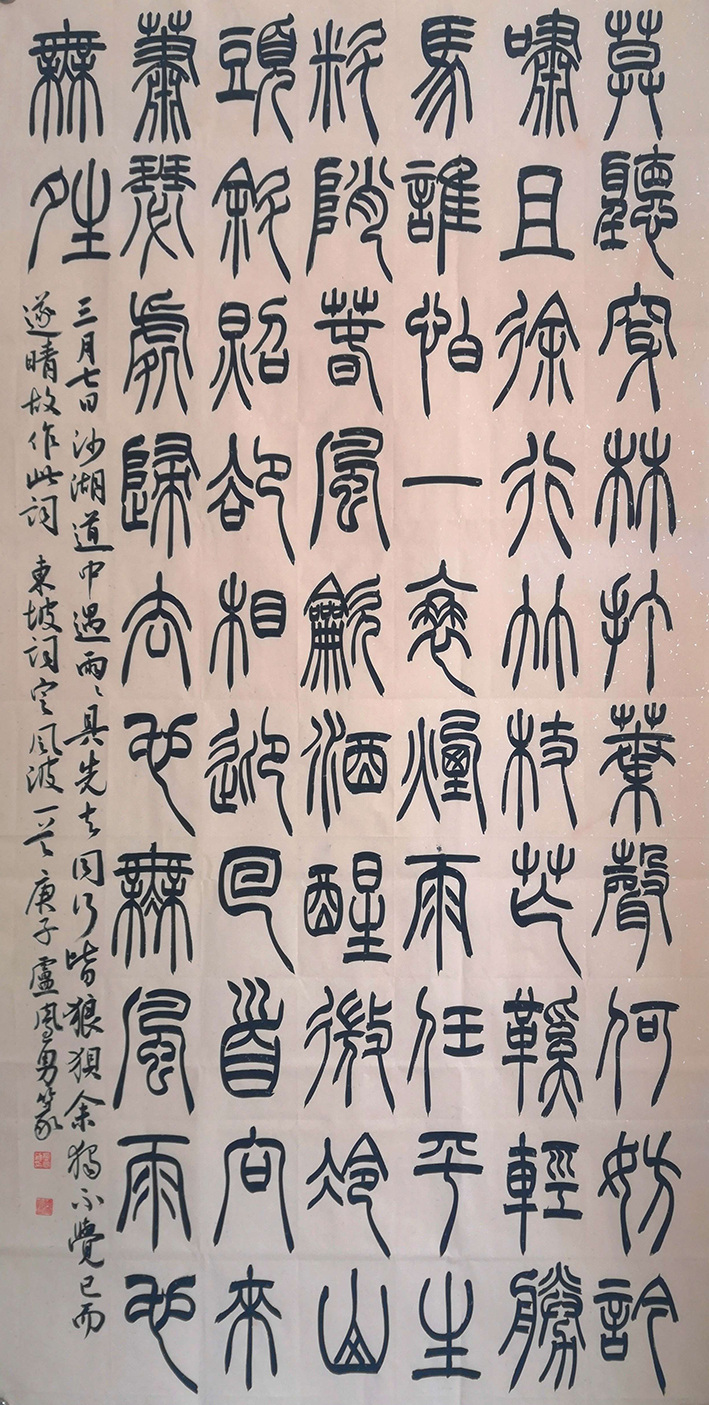 莫聽穿林打葉聲何妨訡
嘯且徐行竹杖芒鞵輕勝
馬誰怕一衰煙雨任平生
料陗春風龡酒醒微冷山
頭斜照卻相迎回首向來
蕭瑟處歸去也無風雨也
無夝
三月七日沙湖道中遇雨〻具先去同行皆狼狽余獨不覺已而
遂晴故作此詞 東坡詞定風波一首 庚子盧鳳勇篆